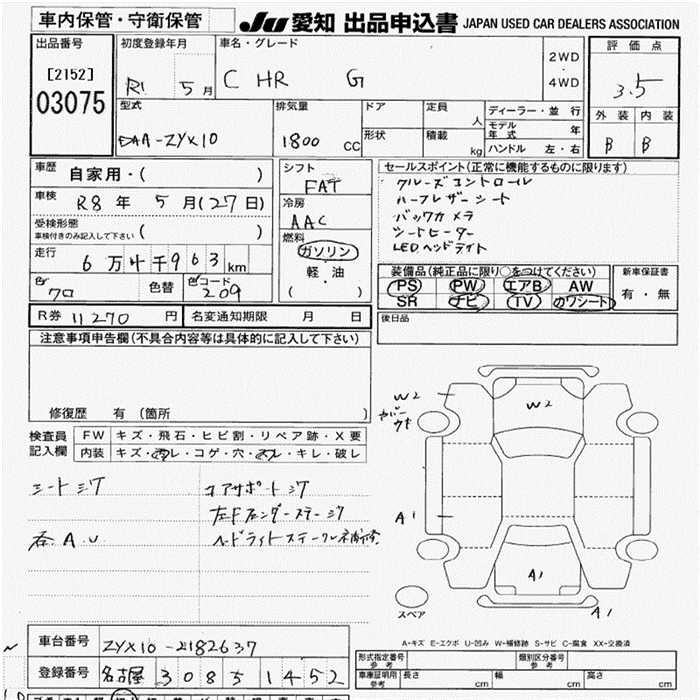 車内保管・守衛保管 JU 愛知 出品申込書 JAPAN USED CAR DEALERS ASSOCIATION
出品番号
[2152]
03075
初度登録年月
R1 5月
車名・グレード
C HR G
2WD
・
4WD
評価点
3.5
外装 内装
B B
型式
DAA-ZYX10
排気量
1800 CC
ドア
形状
定員
人
積載
kg
ディーラー・並行
モデル年式 年
ハンドル 左・右
車歴
自家用・( )
車検
R8年5月(27日)
受検形態
車検付きのみ記入して下さい ( )
走行
6万4千963km
色
クロ
色替
色コード
209
シフト
FAT
冷房
AAC
燃料
ガソリン
軽・油
( )
セールスポイント(正常に機能するものに限ります)
クルーズコントロール
ハーフレザーシート
バックカメラ
シートヒーター
LEDヘッドライト
装備品(純正品に限り○をつけてください)
PS PW エアB AW
SR ナビ TV カワシート
新車保証書
有・無
R券 11270円
名変通知期限 月 日
後日品
注意事項申告欄(不具合内容等は具体的に記入して下さい)
修復歴 有(箇所 )
検査員記入欄
FW キズ・飛石・ヒビ割・リペア跡・X要
内装 キズ・汚レ・コゲ・穴・スレ・キレ・破レ
シートシワ
コアサポートシワ
左Fフェンダーステーシワ
各A.U
ヘッドライトステークル補修済
W2
カバーウキ
W2
A1
A1
A1
スペア
A-キズ E-エクボ U-凹み W-補修跡 S-サビ C-腐食 XX-交換済
車台番号
ZYX10-2182637
登録番号
名古屋 3085 1452
形式指定番号
参考
類別区分番号
参考
車庫証明用
参考
長さ cm 幅 cm 高さ cm